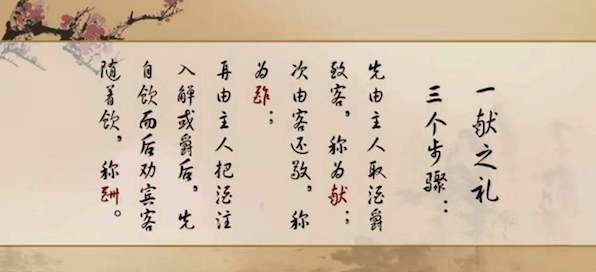 一献之礼
三个步骤：
先由主人取酒爵
致客，称为献；
次由客还敬，称
为酢；
再由主人把酒注
入觯或爵后，先
自饮而后劝宾客
随着饮，称酬。